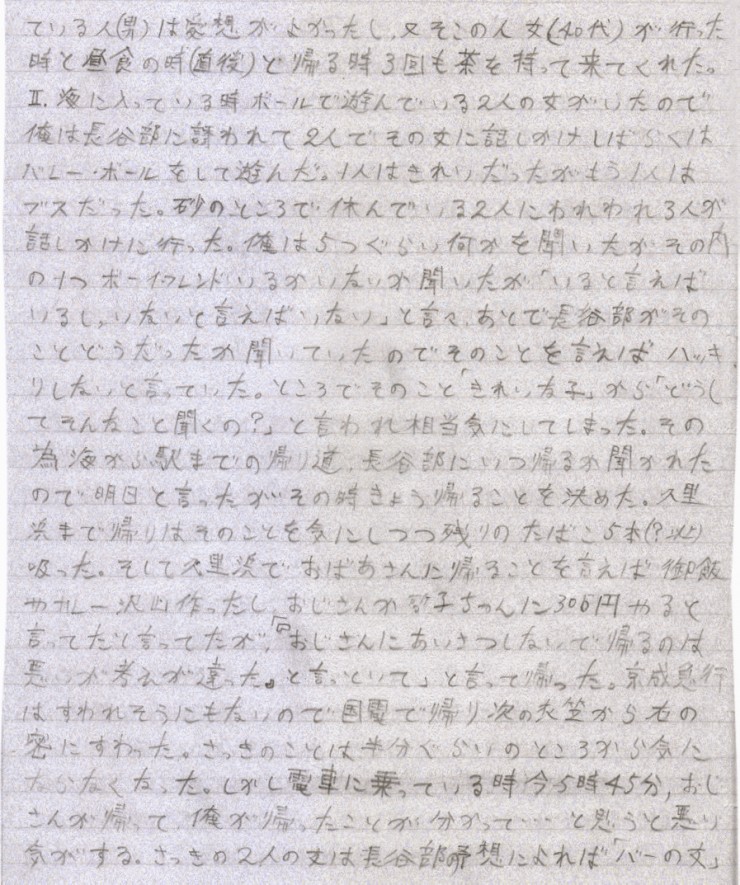 ている人(男)は愛想がよかったし、又そこの人女(40代)が行った
時と昼食の時(直後)と帰る時3回も茶を持って来てくれた。
II. 海に入っている時ボールで遊んでいる2人の女がいたので
俺は長谷部に誘われて2人でその女に話しかけしばらくは
バレー・ボールをして遊んだ。1人はきれいだったがもう1人は
ブスだった。砂のところで休んでいる2人にわれわれ3人が
話しかけに行った。俺は5つぐらい何かを聞いたがその内
の1つボーイフレンドいるかいないか聞いたが「いると言えば
いるし、いないと言えばいない」と言い、あとで長谷部がその
ことどうだったか聞いていたのでそのことを言えばハッキ
リしないと言っていた。ところでそのこと「きれいな子」から「どうし
てそんなこと聞くの?」と言われ相当気にしてしまった。その
為海から駅までの帰り道、長谷部にいつ帰るか聞かれた
ので明日と言ったがその時きょう帰ることを決めた。久里
浜まで帰りはそのことを気にしつつ残りのたばこ5本(?以上)
吸った。そして久里浜でおばあさんに帰ることを言えば御飯
やカレー沢山作ったし、おじさんが 子ちゃんに300円やると
言ってたと言ってたが、「おじさんにあいさつしないで帰るのは
悪いが考えが違った。と言っといて」と言って帰った。京成急行
はすわれそうにもないので国電で帰り次の衣笠から右の
窓にすわった。さっきのことは半分ぐらいのところから気に
ならなくなった。しかし電車に乗っている時今5時45分、おじ
さんが帰って、俺が帰ったことが分かって…と思うと悪い
気がする。さっきの2人の女は長谷部予想によれば「バーの女」